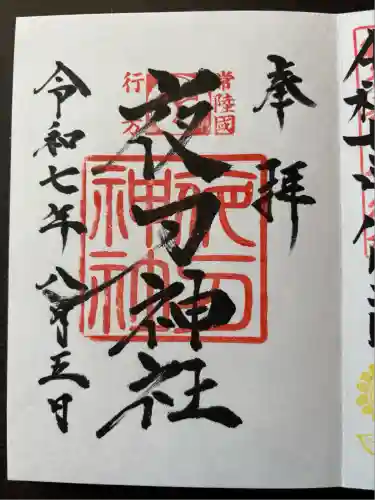 奉拝
常陸國
行方
夜刀神社
夜刀神社
令和七年八月五日